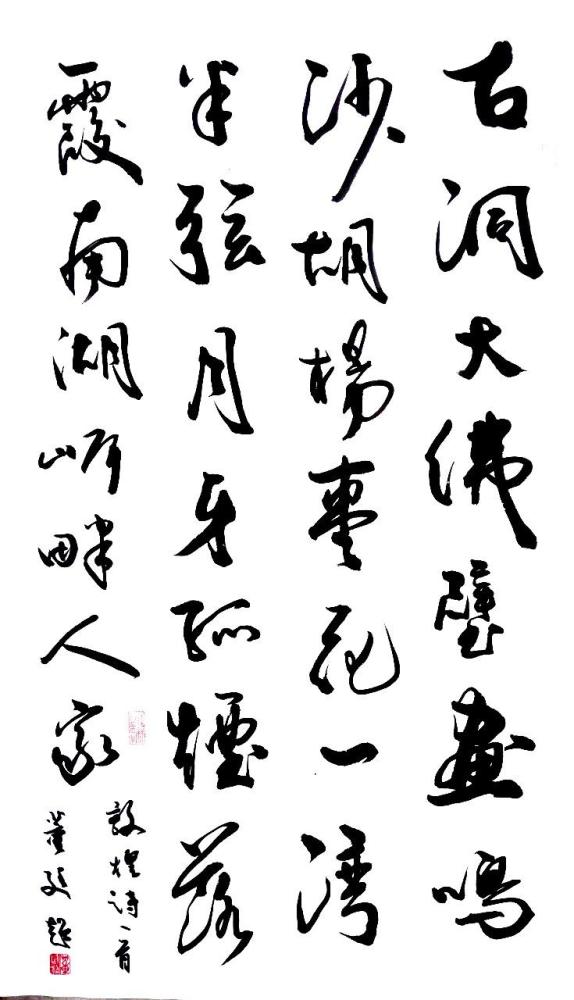 古洞大佛壁畫鳴
沙胡楊棗花一灣
半弦月牙孤煙落
霞南湖岸畔人家
敦煌詩一首
董超